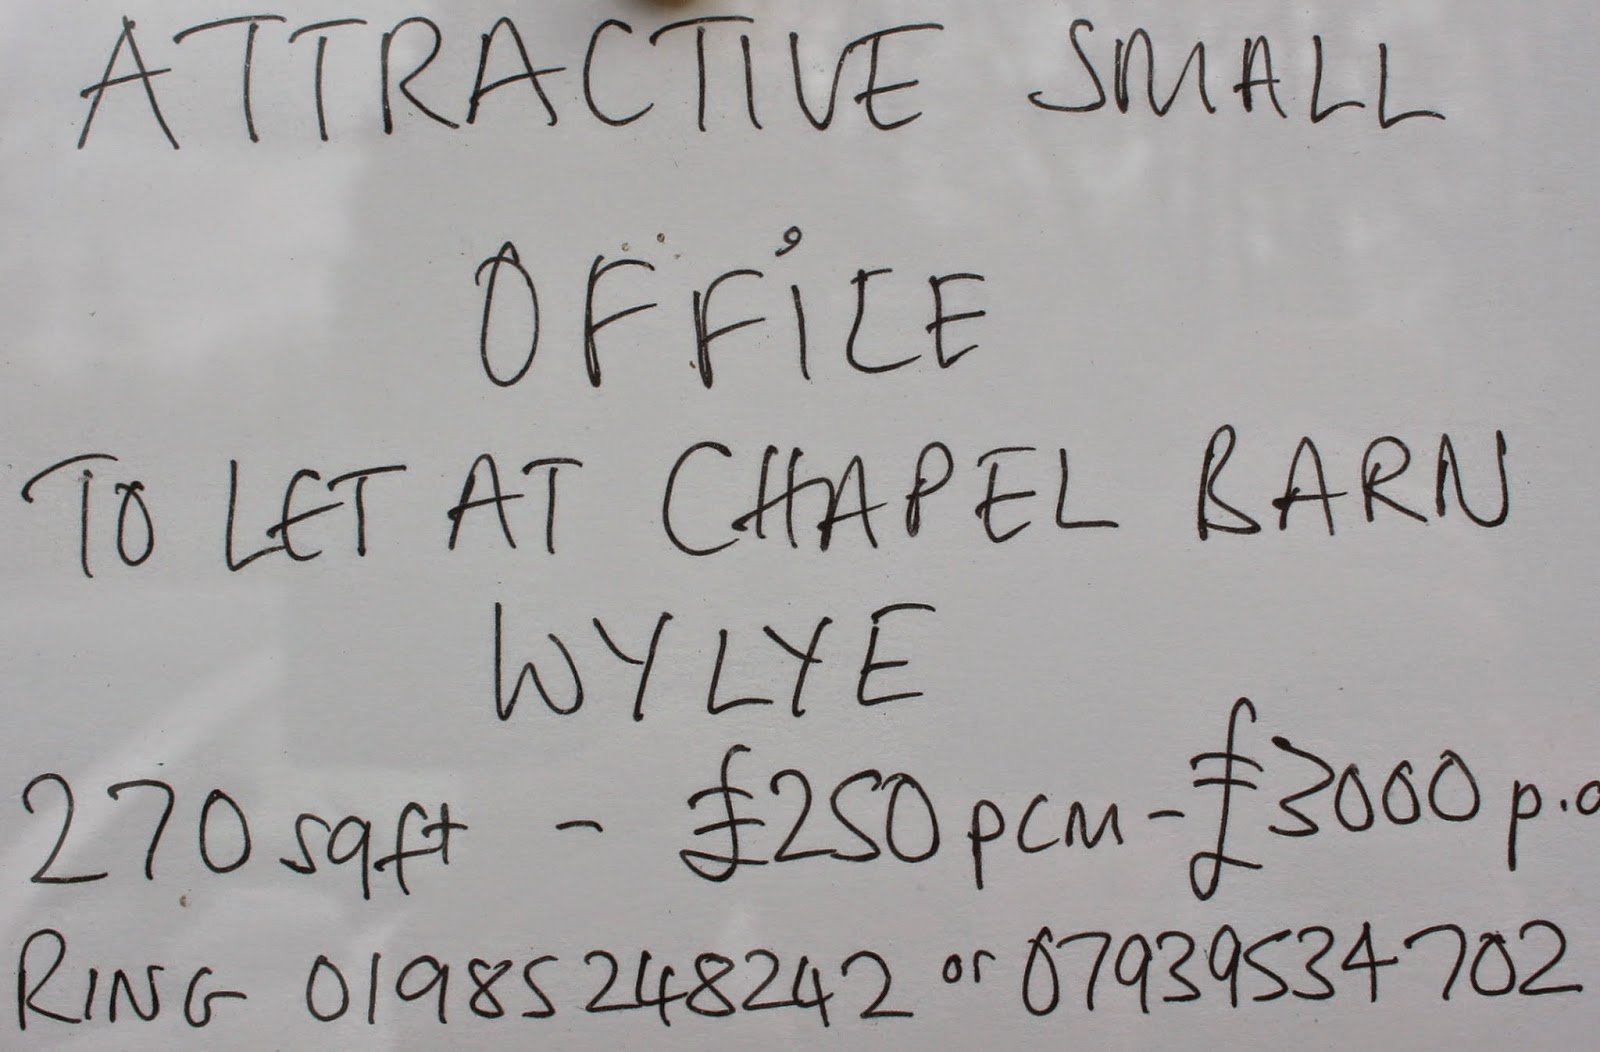 ATTRACTIVE SMALL
OFFICE
TO LET AT CHAPEL BARN
WYLYE
270 sqft - £250 pcm - £3000 p.a
RING 01985248242 or 07939534702